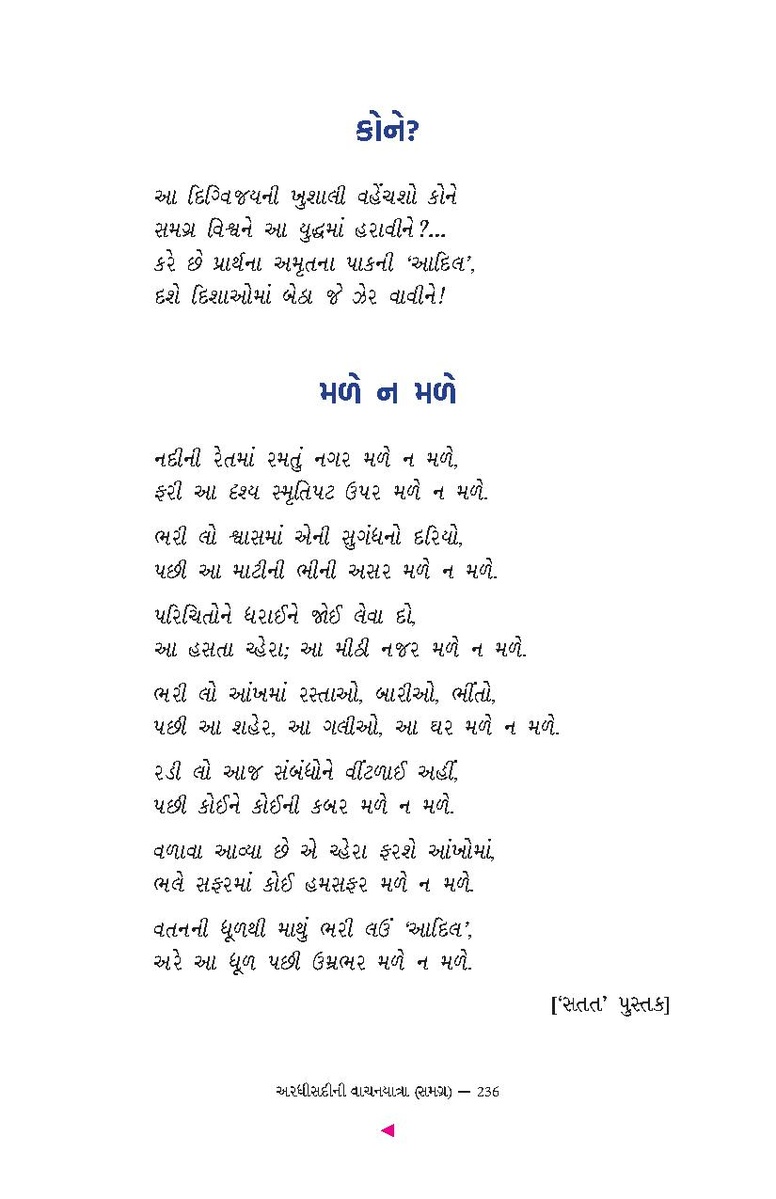 કોને?
આ દિગ્વિજયની ખુશાલી વહેંચશો કોને
સમગ્ર વિશ્વને આ યુદ્ધમાં હરાવીને?...
કરે છે પ્રાર્થના અમૃતના પાકની ‘આદિલ’,
દશે દિશાઓમાં બેઠા જે ઝેર વાવીને!
મળે ન મળે
નદીની રેતમાં રમતું નગર મળે ન મળે,
ફરી આ દૃશ્ય સ્મૃતિપટ ઉપર મળે ન મળે.
ભરી લો શ્વાસમાં એની સુગંધનો દરિયો,
પછી આ માટીની ભીની અસર મળે ન મળે.
પરિચિતોને ધરાઈને જોઈ લેવા દો,
આ હસતા ચ્હેરા; આ મીઠી નજર મળે ન મળે.
ભરી લો આંખમાં રસ્તાઓ, બારીઓ, ભીંતો,
પછી આ શહેર, આ ગલીઓ, આ ઘર મળે ન મળે.
રડી લો આજ સંબંધોને વીંટળાઈ અહીં,
પછી કોઈને કોઈની કબર મળે ન મળે.
વળાવા આવ્યા છે એ ચ્હેરા ફરશે આંખોમાં,
ભલે સફરમાં કોઈ હમસફર મળે ન મળે.
વતનની ધૂળથી માથું ભરી લઉં ‘આદિલ’,
અરે આ ધૂળ પછી ઉમ્રભર મળે ન મળે.
[‘સતત’ પુસ્તક]
અરધીસદીની વાચનયાત્રા (સમગ્ર) — 236